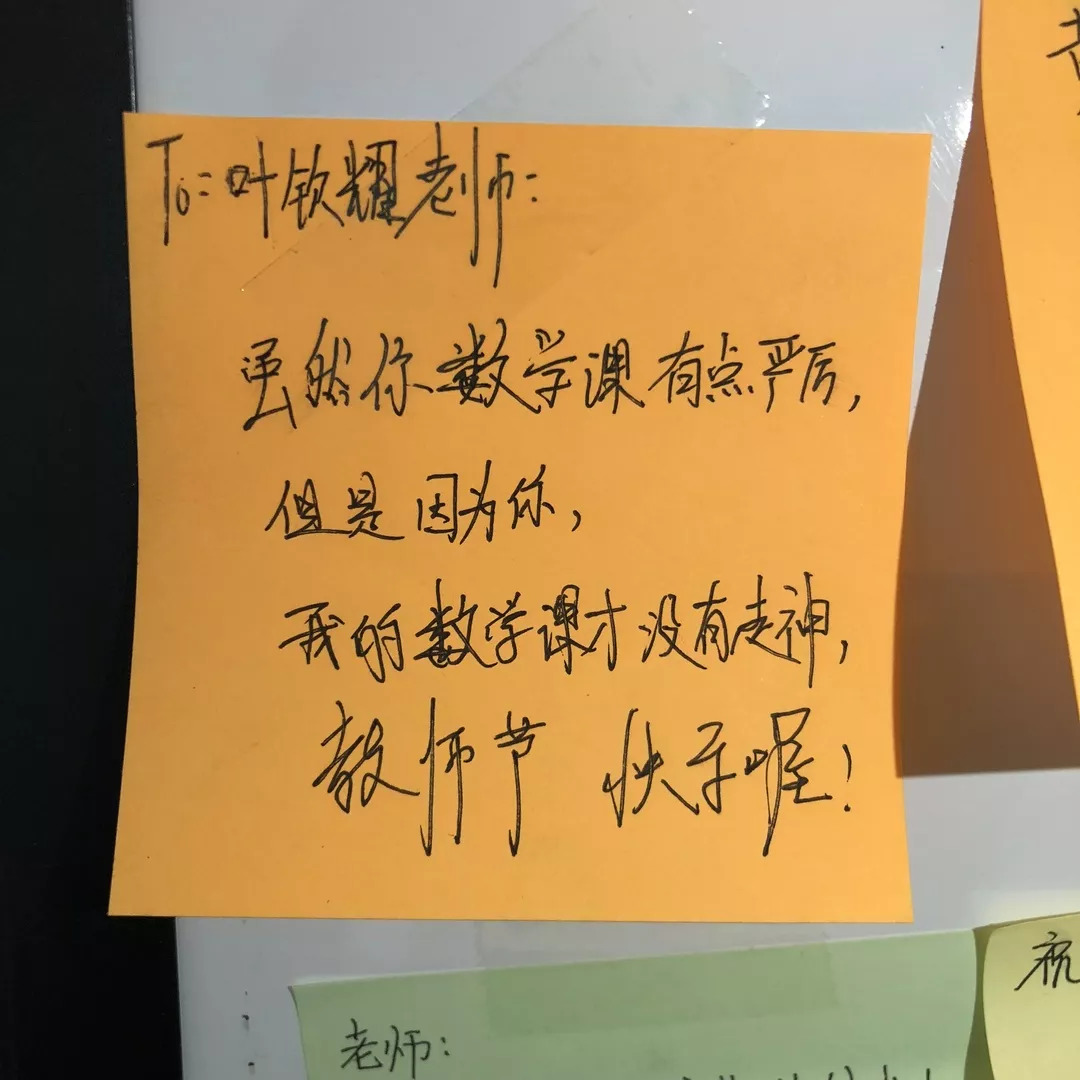 To:叶钦耀老师:
虽然你数学课有点严厉,
但是因为你,
我的数学课才没有走神,
教师节 快乐喔!
老师:
祝